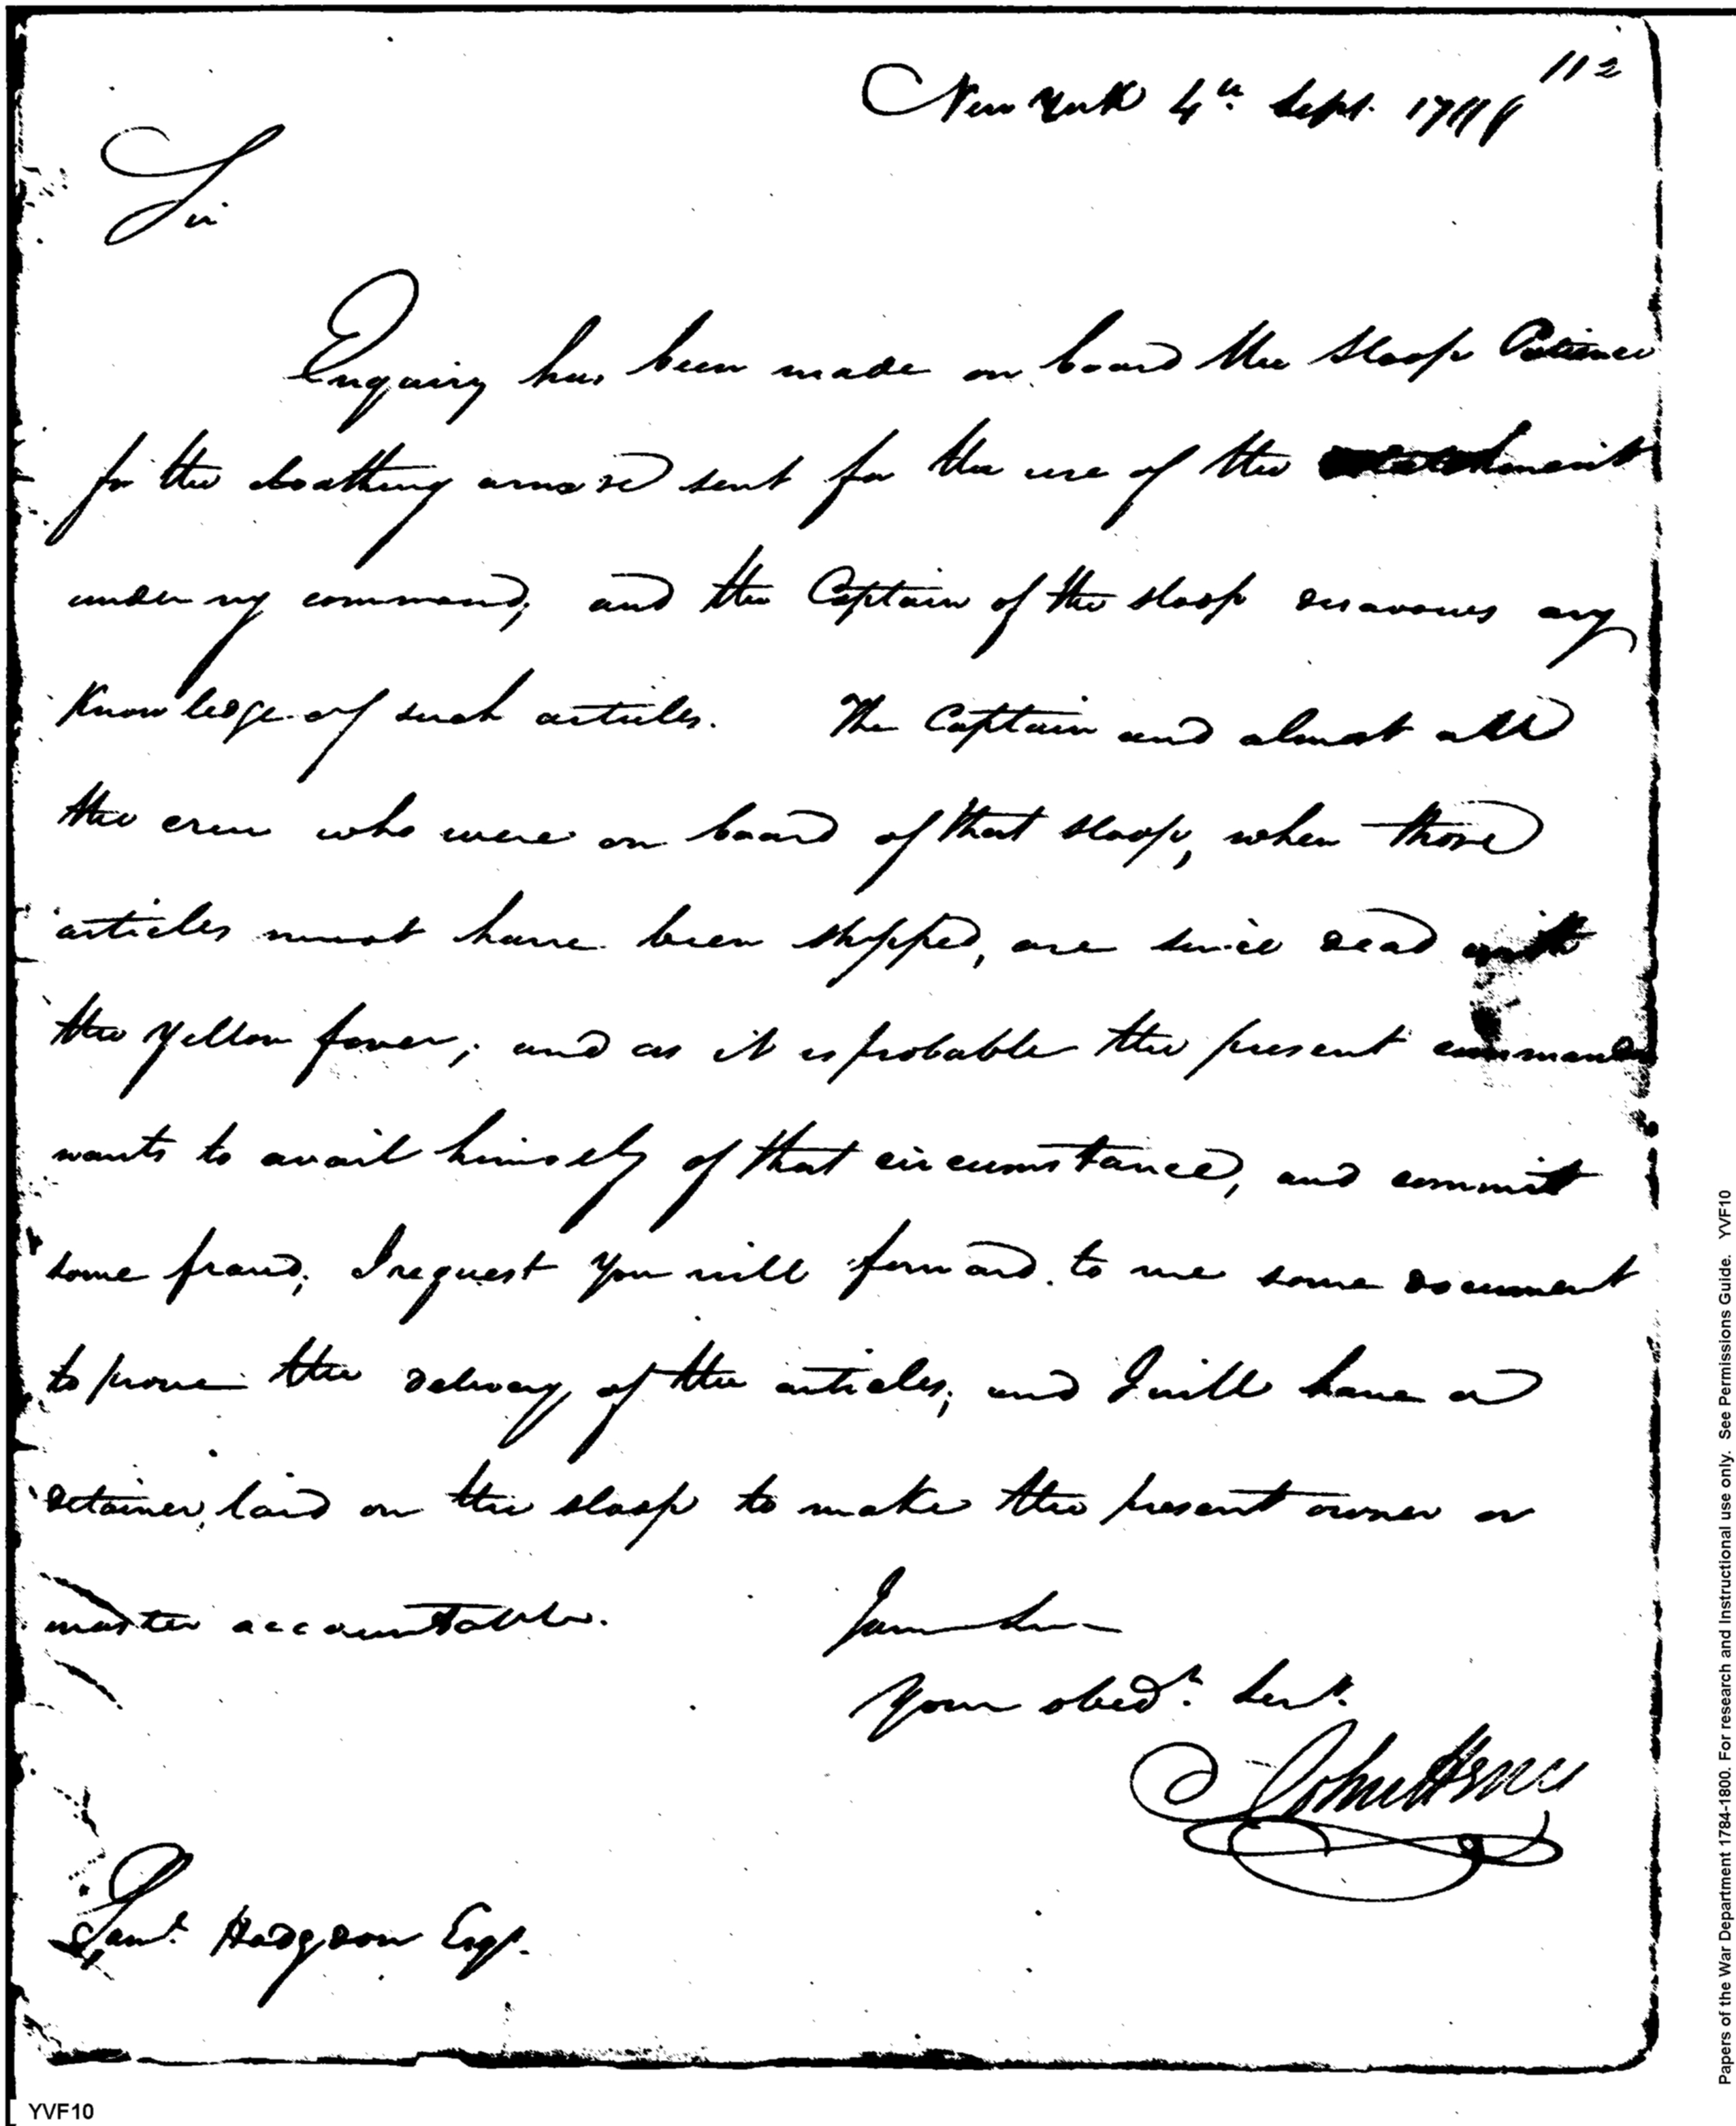 112
New York 4th Sept. 1799
Sir
Enquiry has been made on board the Sloop Patience
for the cloathing arms &c sent for the use of the detachment
under my command; and the Captain of the sloop disavows any
Knowledge of such articles. The Captain and almost all
the crew who were on board of that sloop, when those
articles must have been shipped, are since dead with
the yellow fever; and as it is probable the present commander
wants to avail himself of that circumstance, and commit
some fraud; I request you will forward to me some document
to prove the delivery of the articles; and I will have a
detainer laid on the sloop to make the present owner or
master accountable. I am Sir
Your obedt. Servt.
John Henry
Saml. Hodgdon Esqr.
YVF10
Papers of the War Department 1784-1800. For research and Instructional use only. See Permissions Guide. YVF10